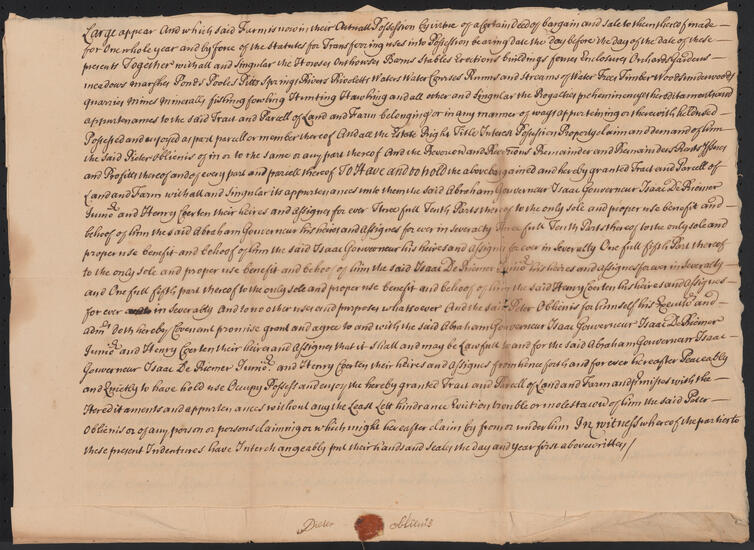 Large appear And which said Farm is now in their Actuall Possession by virtue of a Certain Deed of bargain and Sale to them thereof made
for One whole year and by force of the Statutes for Transferring uses into Possession bearing date the day before the day of the date of these
presents Together with all and Singular the Houses Outhouses Barns Stables Erections buildings fences Enclosures Orchards Gardens
meadows marshes Ponds Pooles Pitts Springs Rivers Rivoletts Waters Water Courses Runns and Streams of Water Trees Timber Woods underwoods
quarries Mines Mineralls fishing fowling Hunting Hawking and all other and Singular the Royalties preheminences hereditaments and
appurtenances to the said Tract and Parcell of Land and Farm belonging or in any manner of ways appertaining or therewith used
Possessed and enjoyed as part parcell or member thereof And all the Estate Right Title Interest Possession Property claim and demand of him
the Said Pieter Oblienis of in or to the same or any part thereof And the Revercon and Revercons Remainder and Remainders Rents Issues
and Profitts thereof and of every part and parcell thereof To Have and to hold the above bargained and hereby granted Tract and Parcell of
Land and Farm with all and Singular its appurtenances unto them the said Abraham Gouverneur Isaac Gouverneur Isaac De Riemer
Junior. and Henry Coerten their heires and assignes for ever Three full Tenth Parts thereof to the only sole and proper use benefit and
behoof of him the said Abraham Gouverneur his heirs and assignes for ever in severalty Three full Tenth Parts thereof to the only sole and
proper use benefit and behoof of him the said Isaac Gouverneur his heires and Assignes for ever in Severally One full fifth Part thereof
to the only sole and proper use benefit and behoof of him the said Isaac De Riemer Junior. his heires and Assignes for ever in Severally
and One full fifth part thereof to the only sole and proper use benefit and behoof of him the said Henry Coerten his heires and Assignes
for ever in Severally And to no other use and purposes whatsoever And the said Peter Oblienis for himself his Execut.rs and
adm.rs doth hereby Covenant promise grant and agree to and with the said Abraham Gouverneur Isaac Gouverneur Isaac De Riemer
Junior. and Henry Coerten their heires and Assignes that it shall and may be Lawfull to and for the said Abraham Gouverneur Isaac
Gouverneur Isaac De Riemer Junior. and Henry Coerten their heires and Assignes from hence forth and for ever hereafter Peaceably
and Quietly to have hold use Occupy Possess and enjoy the hereby granted Tract and Parcell of Land and Farm and Premises with the
Hereditaments and appurtenances without any the Least Lett hindrance Eviction trouble or molestation of him the said Peter
Oblienis or of any person or persons claiming or which might hereafter claim by from or under him In witness whereof the parties to
these present Indentures have Interchangeably put their hands and seales the day and year first above written /
Pieter oblienis